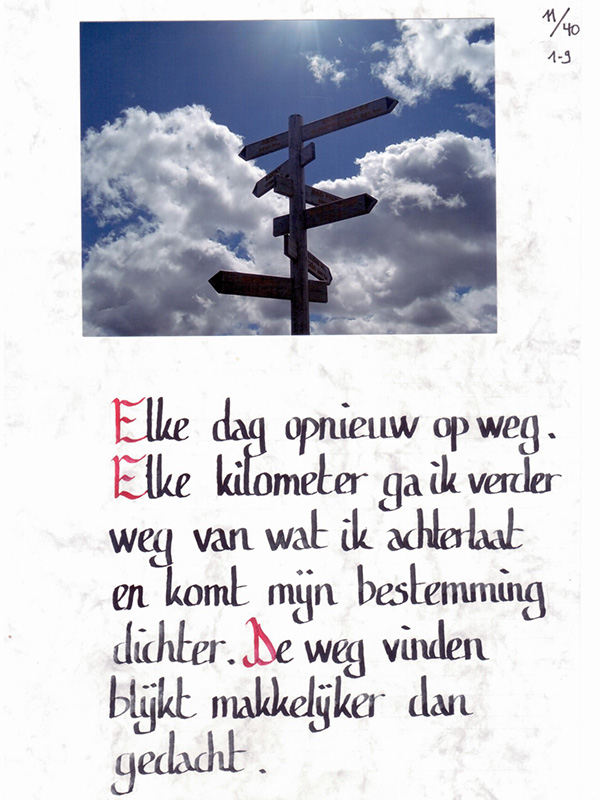 11/40
1-9
Elke dag opnieuw op weg.
Elke kilometer ga ik verder
weg van wat ik achterlaat
en komt mijn bestemming
dichter. De weg vinden
blijkt makkelijker dan
gedacht.